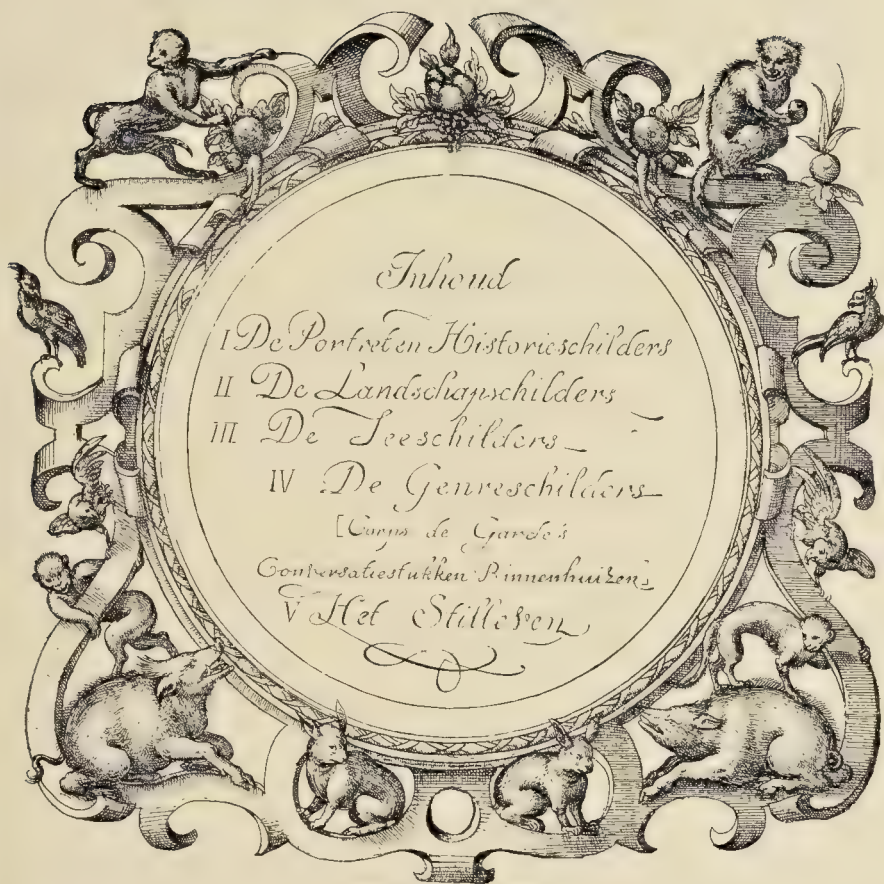 Inhoud
I De Portret en Historieschilders
II De Landschapschilders
III De Zeeschilders
IV De Genreschilders
[Corps de Garde's
Conversatiestukken Binnenhuizen's
V Het Stilleven